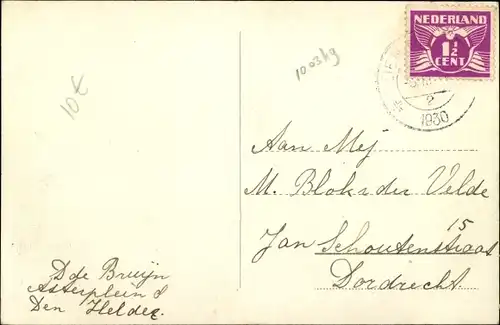 NEDERLAND
1½
CENT
1003kg
10€
2
1930
Aan Mej
M. Blok v der Velde
15
Jan Schoutenstraat
Dordrecht
D de Bruijn
Asterplein 8
Den Helder.